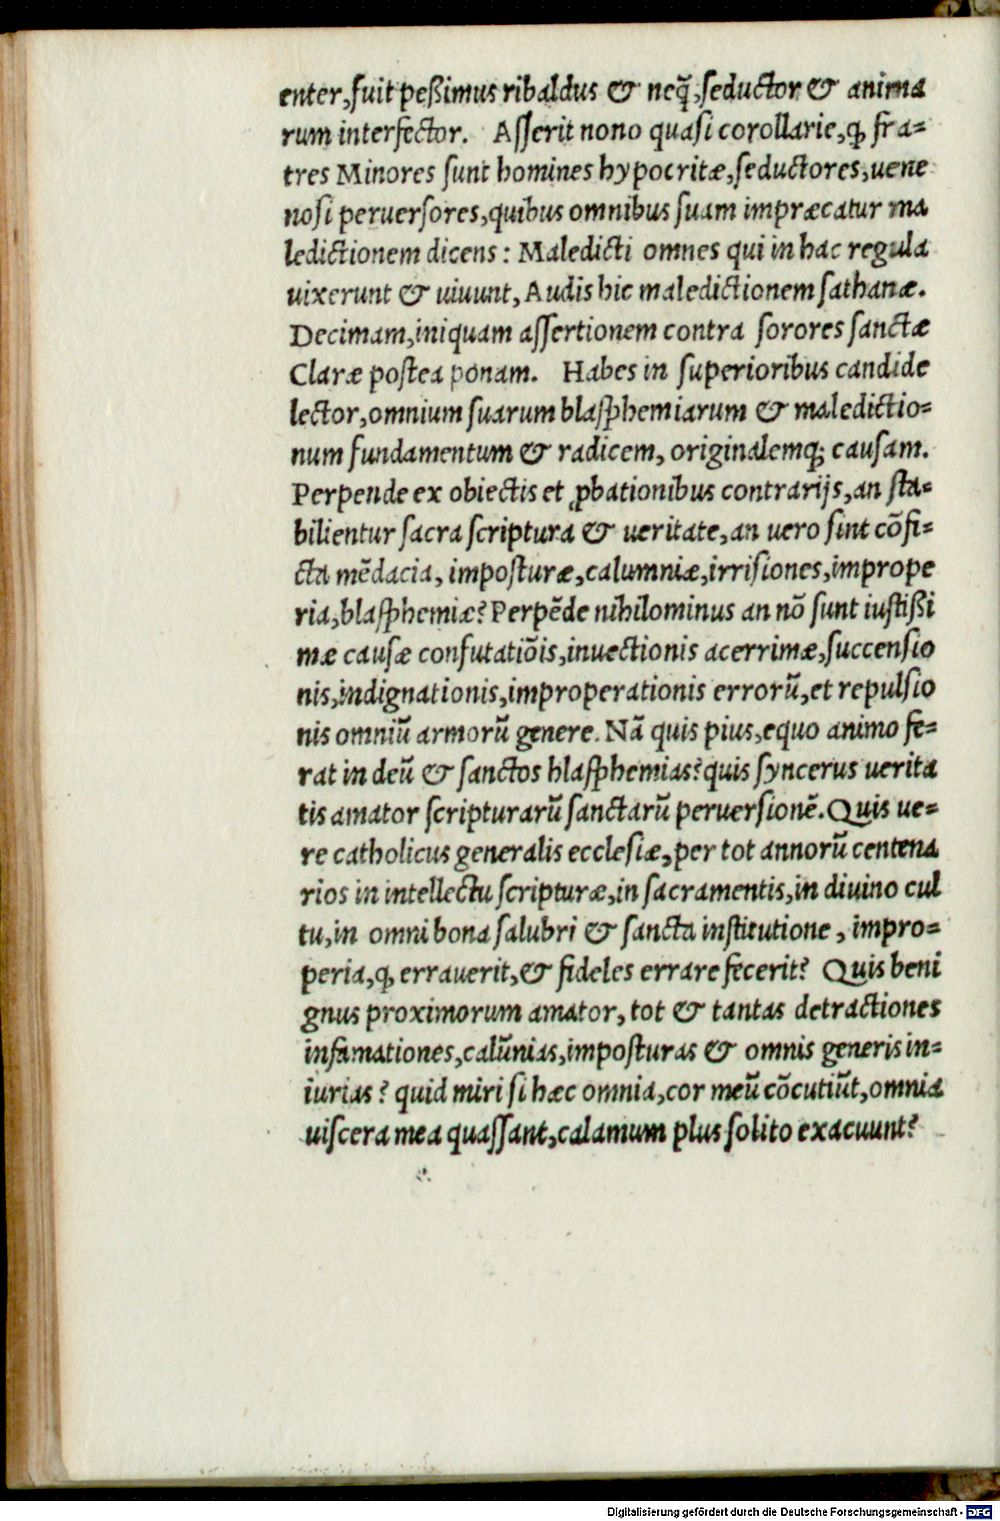 enter,fuit peßimus ribaldus & neq̃,seductor & anima
rum interfector. Asserit nono quasi corollarie,ꝙ fra=
tres Minores sunt homines hypocritæ,seductores,uene
nosi peruersores,quibus omnibus suam impræcatur ma
ledictionem dicens: Maledicti omnes qui in hac regula
uixerunt & uiuunt, Audis hic maledictionem sathanæ.
Decimam,iniquam assertionem contra sorores sanctæ
Claræ postea ponam. Habes in superioribus candide
lector,omnium suarum blasphemiarum & maledictio=
num fundamentum & radicem, originalemq; causam.
Perpende ex obiectis et ꝓbationibus contrarijs,an sta=
bilientur sacra scriptura & ueritate,an uero sint cõfi=
cta mẽdacia, imposturæ,calumniæ,irrisiones,imprope
ria,blasphemiæ? Perpẽde nihilominus an nõ sunt iustißi
mæ causæ confutatiõis,inuectionis acerrimæ,succensio
nis,indignationis,improperationis errorũ,et repulsio
nis omniũ armorũ genere. Nã quis pius,equo animo fe=
rat in deũ & sanctos blasphemias? quis syncerus uerita
tis amator scripturarũ sanctarũ peruersionẽ. Quis ue=
re catholicus generalis ecclesiæ,per tot annorũ centena
rios in intellectu scripturæ,in sacramentis,in diuino cul
tu,in omni bona salubri & sancta institutione, impro=
peria,ꝙ errauerit,& fideles errare fecerit? Quis beni
gnus proximorum amator, tot & tantas detractiones
infamationes,calũnias,imposturas & omnis generis in=
iurias? quid miri si hæc omnia,cor meũ cõcutiũt,omnia
uiscera mea quassant,calamum plus solito exacuunt?
Digitalisierung gefördert durch die Deutsche Forschungsgemeinschaft - DFG